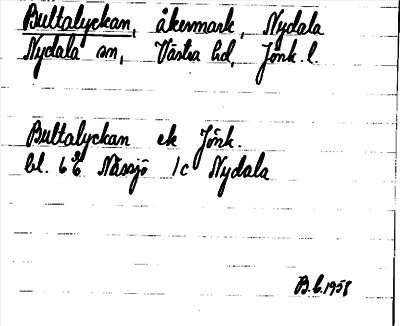 Bultalyckan, åkermark, Nydala
Nydala sn, Västra hd, Jönk. l.
Bultalyckan ek Jönk.
bl. 6 Nässjö 1c Nydala
1958